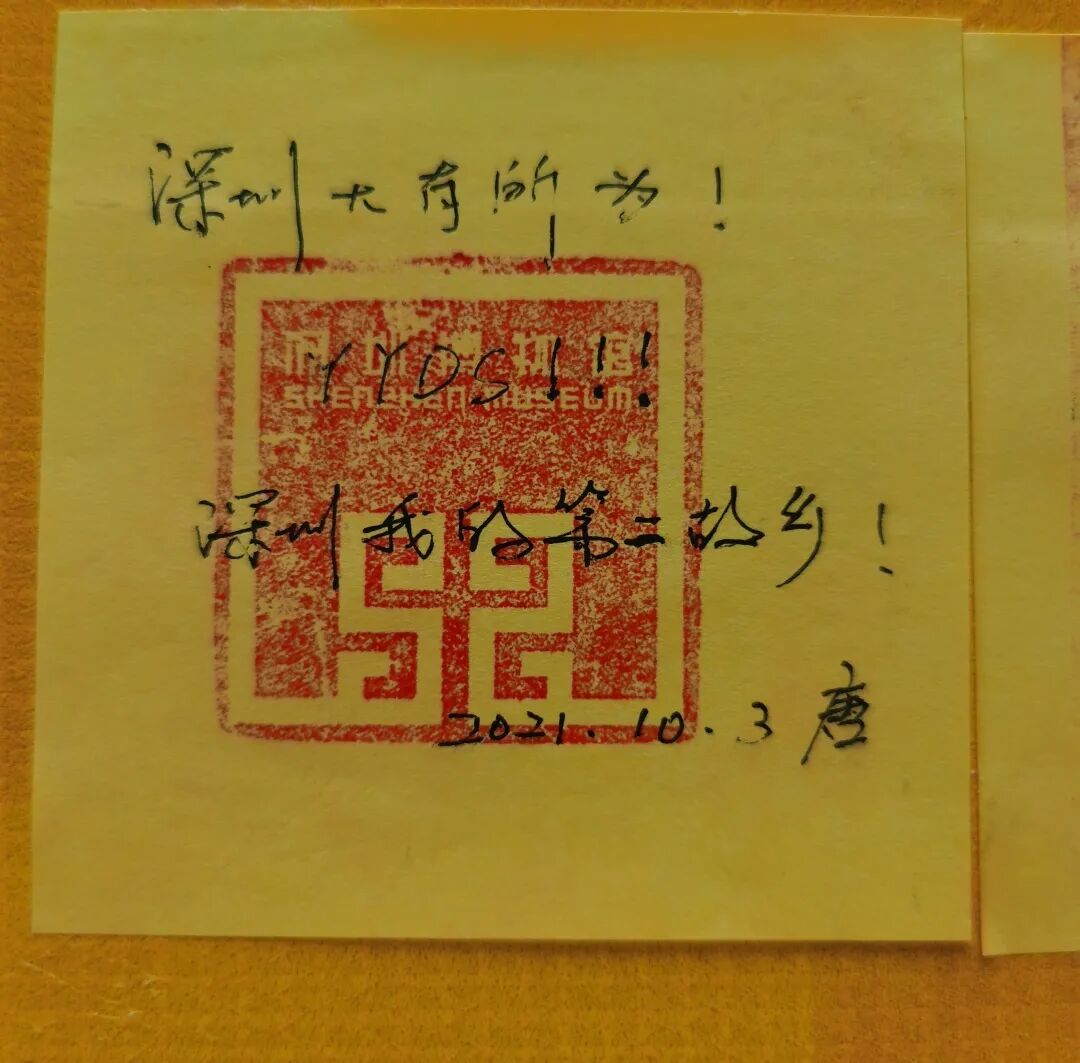 深圳大有所为！
深圳博物馆
YYDS!!!
SHENZHEN MUSEUM
深圳我的第二故乡！
2021.10.3 唐